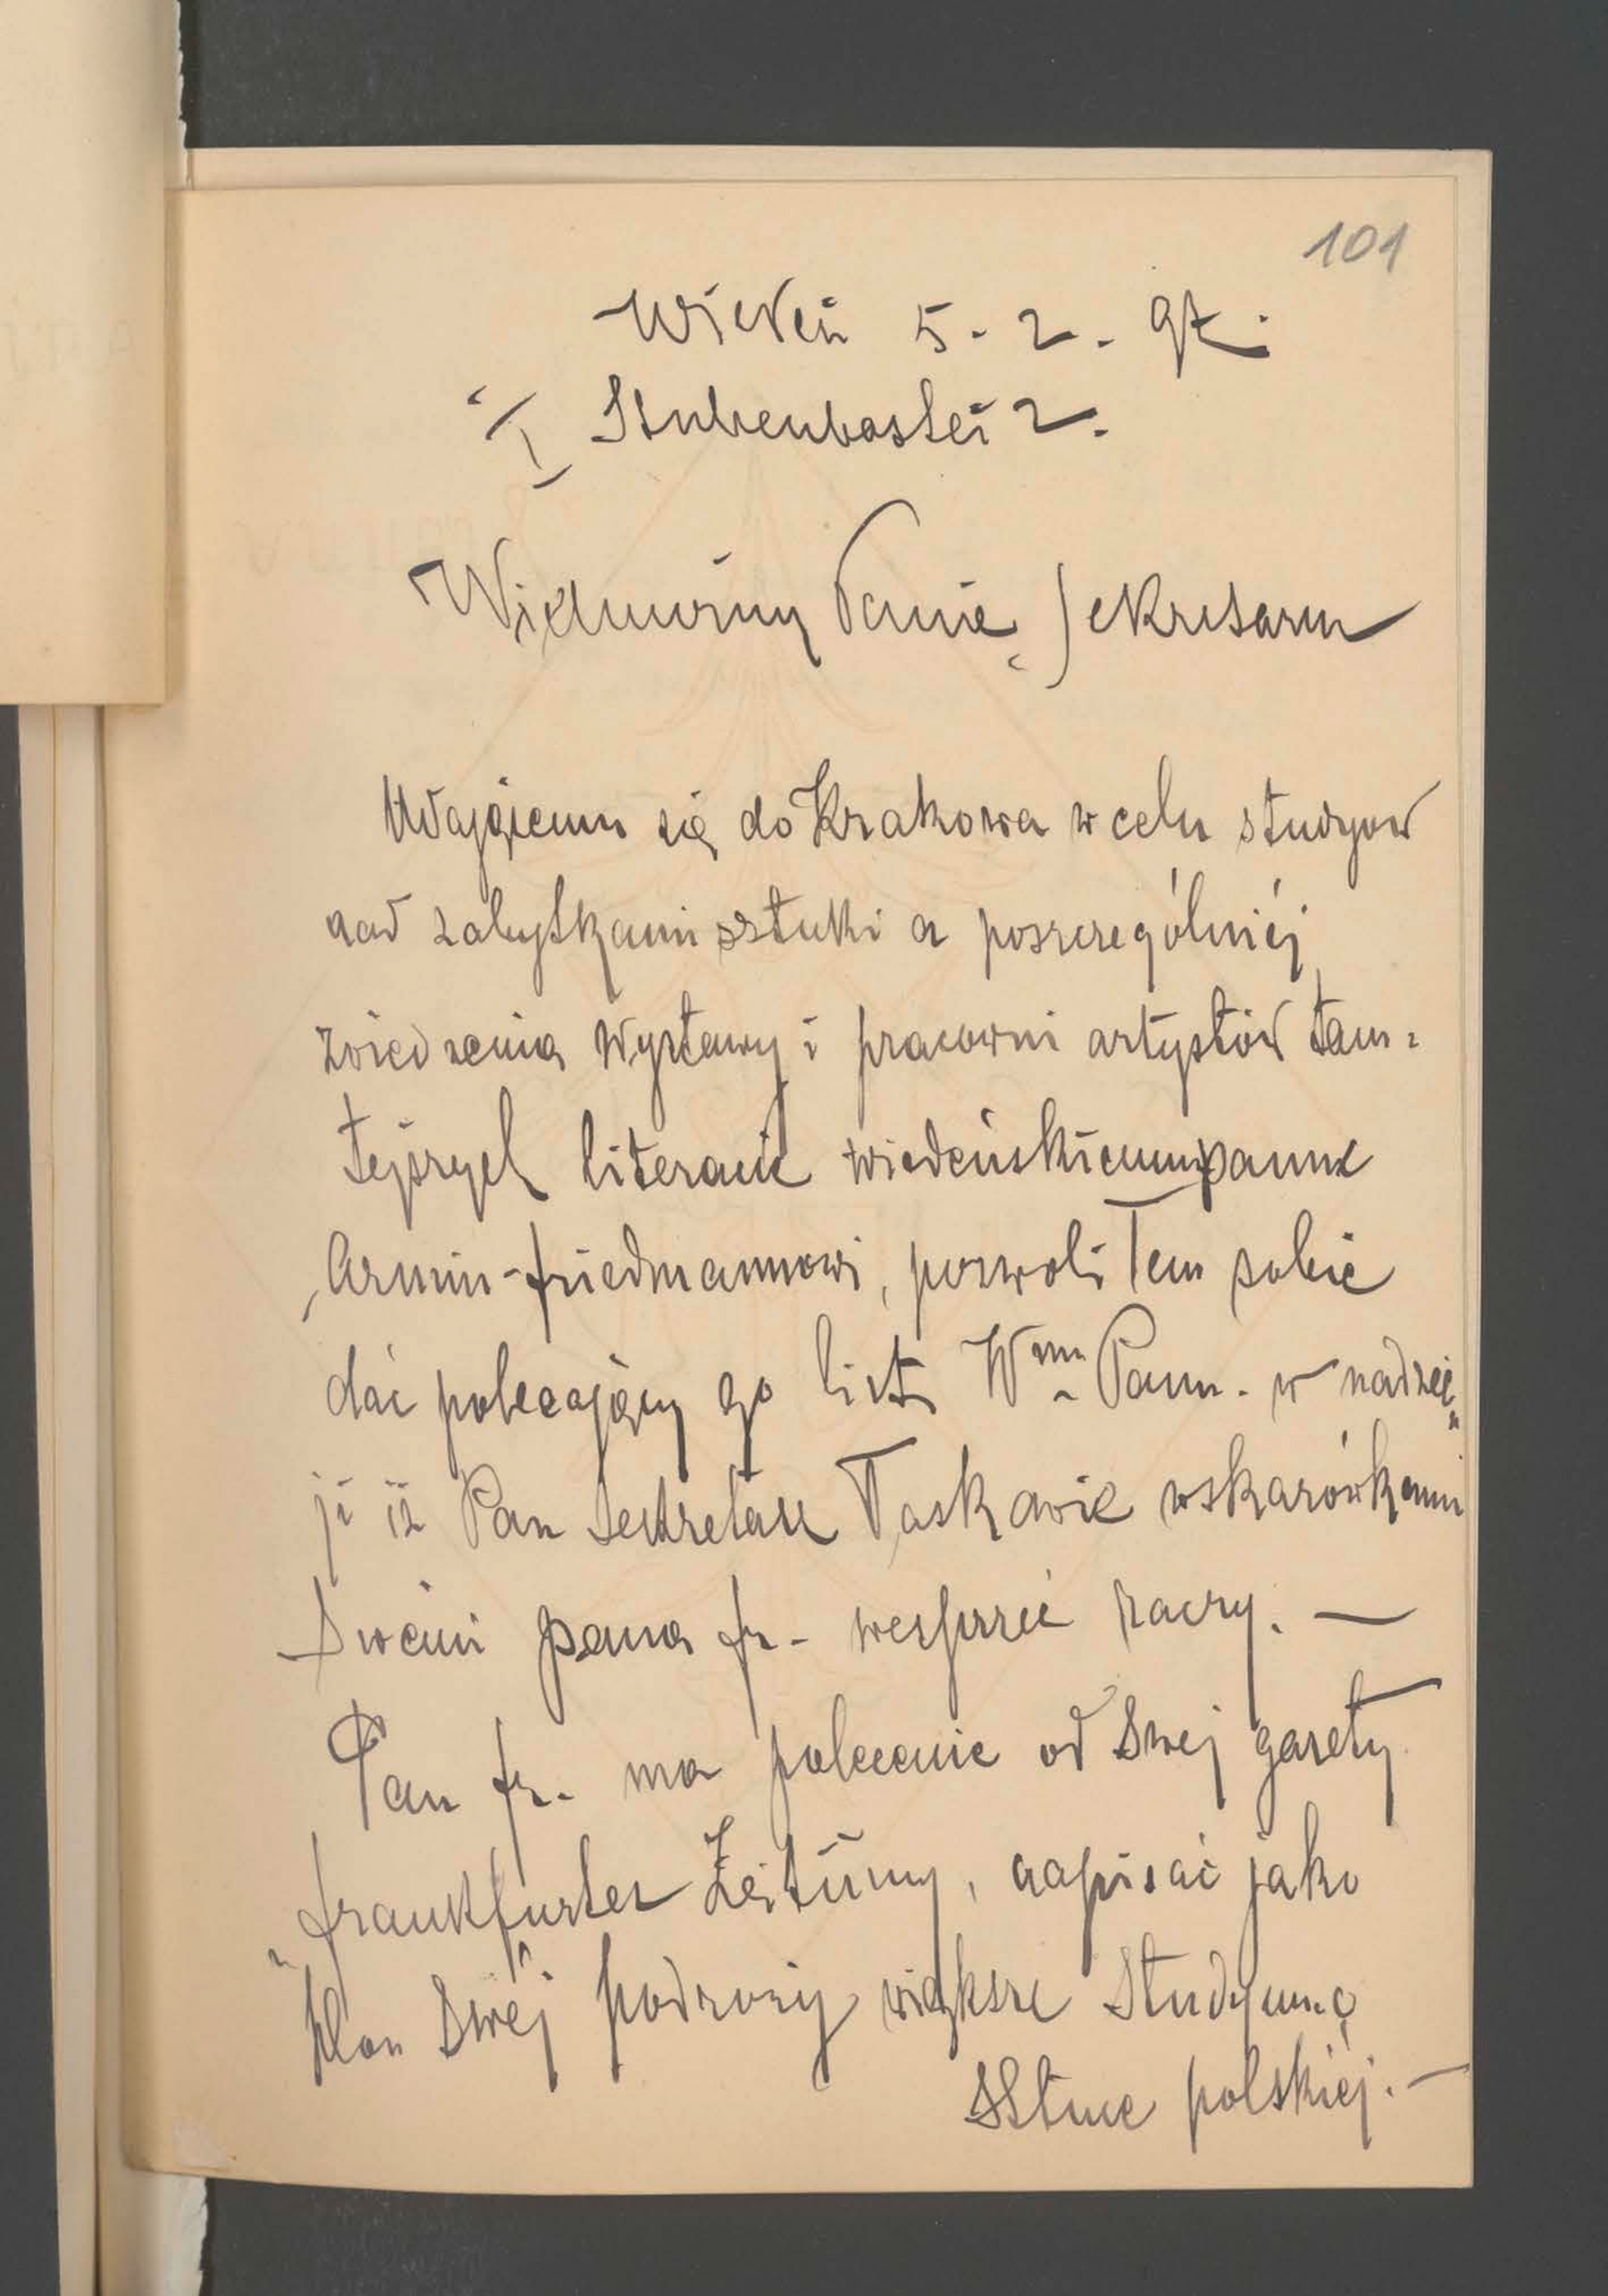 101
Wiedeń 5. 2. 97.
I Stubenbastei 2.
Wielmożny Panie Sekretarzu
Udającemu się do Krakowa w celu studyow
nad zabytkami sztuki a poszczególniéj
zwiedzenia Wystawy i pracowni artystów tam=
tejszych literacie wiedeńskiemu panu
Armin-Friedmannowi, pozwoliłem sobie
dać polecający go list Wmu Panu. w nadzie„
ji iż Pan Sekretarz łaskawie wskazówkami
Swemi pana Fr. wesprzeć raczy. —
Pan Fr. ma polecenie od Swej gazety
„Frankfurter Zeitung", napisać jako
plon Swéj podrozy większe Studyum o
Sztuce polskiéj. —